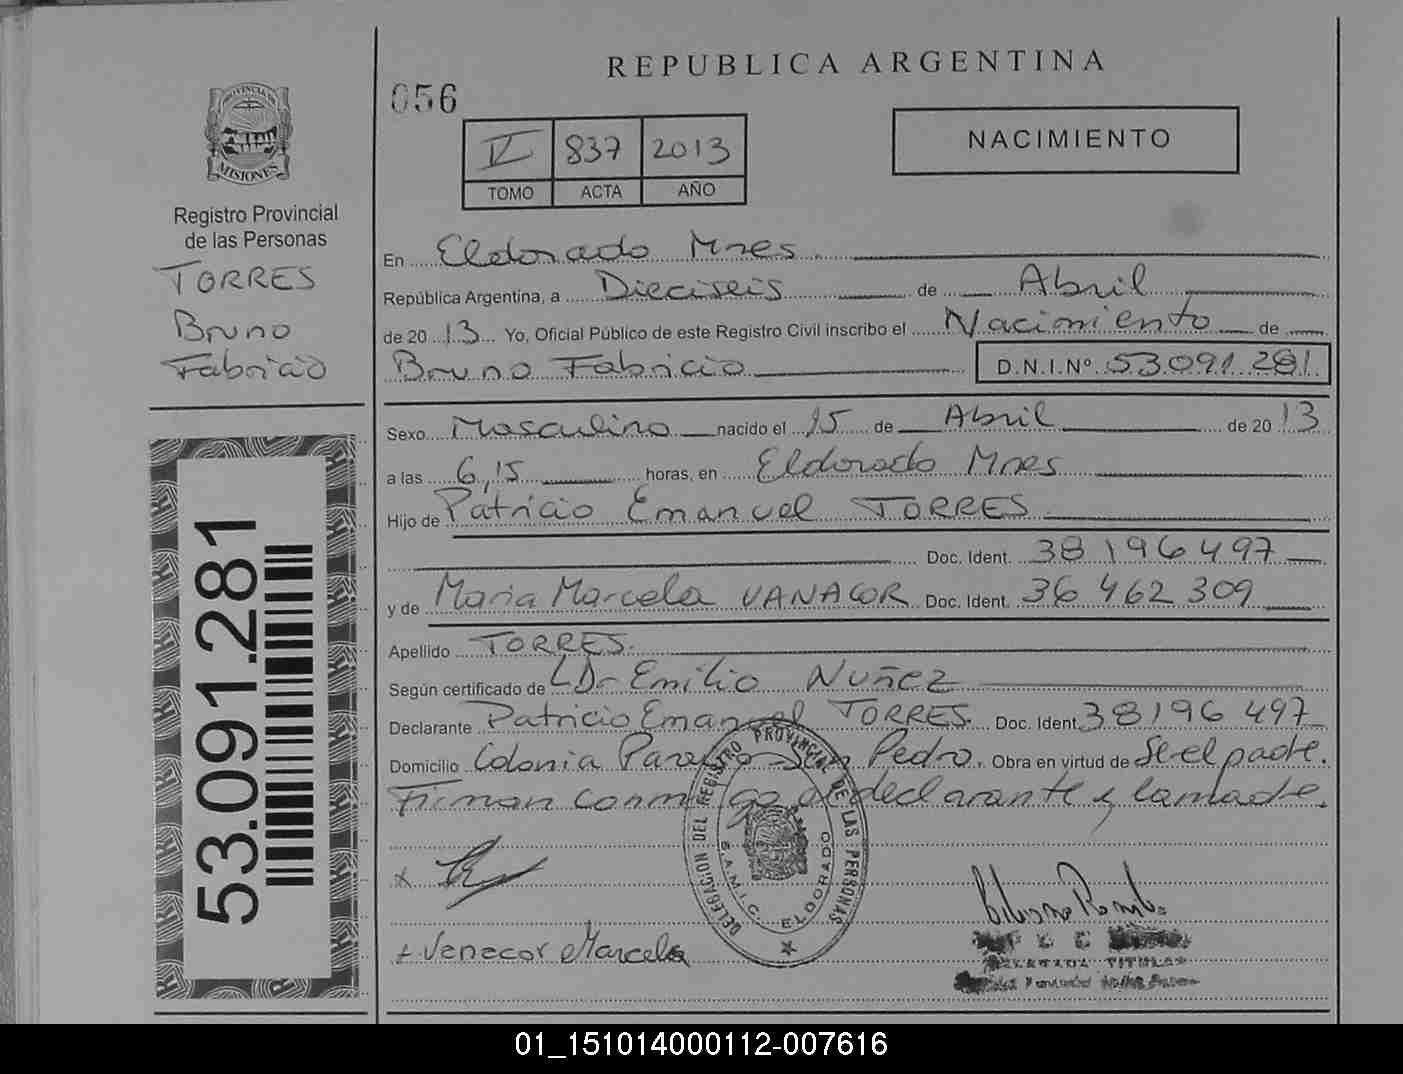 REPUBLICA ARGENTINA
056
PROVINCIA DE
MISIONES
Registro Provincial
de las Personas
TORRES
Bruno
Fabricio
53.091.281
IV 837 2013
TOMO ACTA AÑO
NACIMIENTO
En Eldorado Mnes
República Argentina, a Dieciseis de Abril
de 2013 Yo, Oficial Público de este Registro Civil inscribo el Nacimiento de
Bruno Fabricio D.N.I.Nº 53.091.281
Sexo Masculino nacido el 15 de Abril de 2013
a las 6,15 horas, en Eldorado Mnes
Hijo de Patricio Emanuel TORRES
Doc. Ident. 38 196 497
y de Maria Marcela VANACOR Doc. Ident. 36 462 309
Apellido TORRES.
Según certificado de Dr Emilio Nuñez
Declarante Patricio Emanuel TORRES. Doc. Ident 38196 497
Domicilio Colonia San Pedro. Obra en virtud de Ser el padre.
Firman conmigo el declarante y la madre.
DELEGACION DEL REGISTRO PROVINCIAL DE LAS PERSONAS
S.A.M.I.C. ELDORADO
x
+ Venecor Marcela
TITULAR
01_151014000112-007616